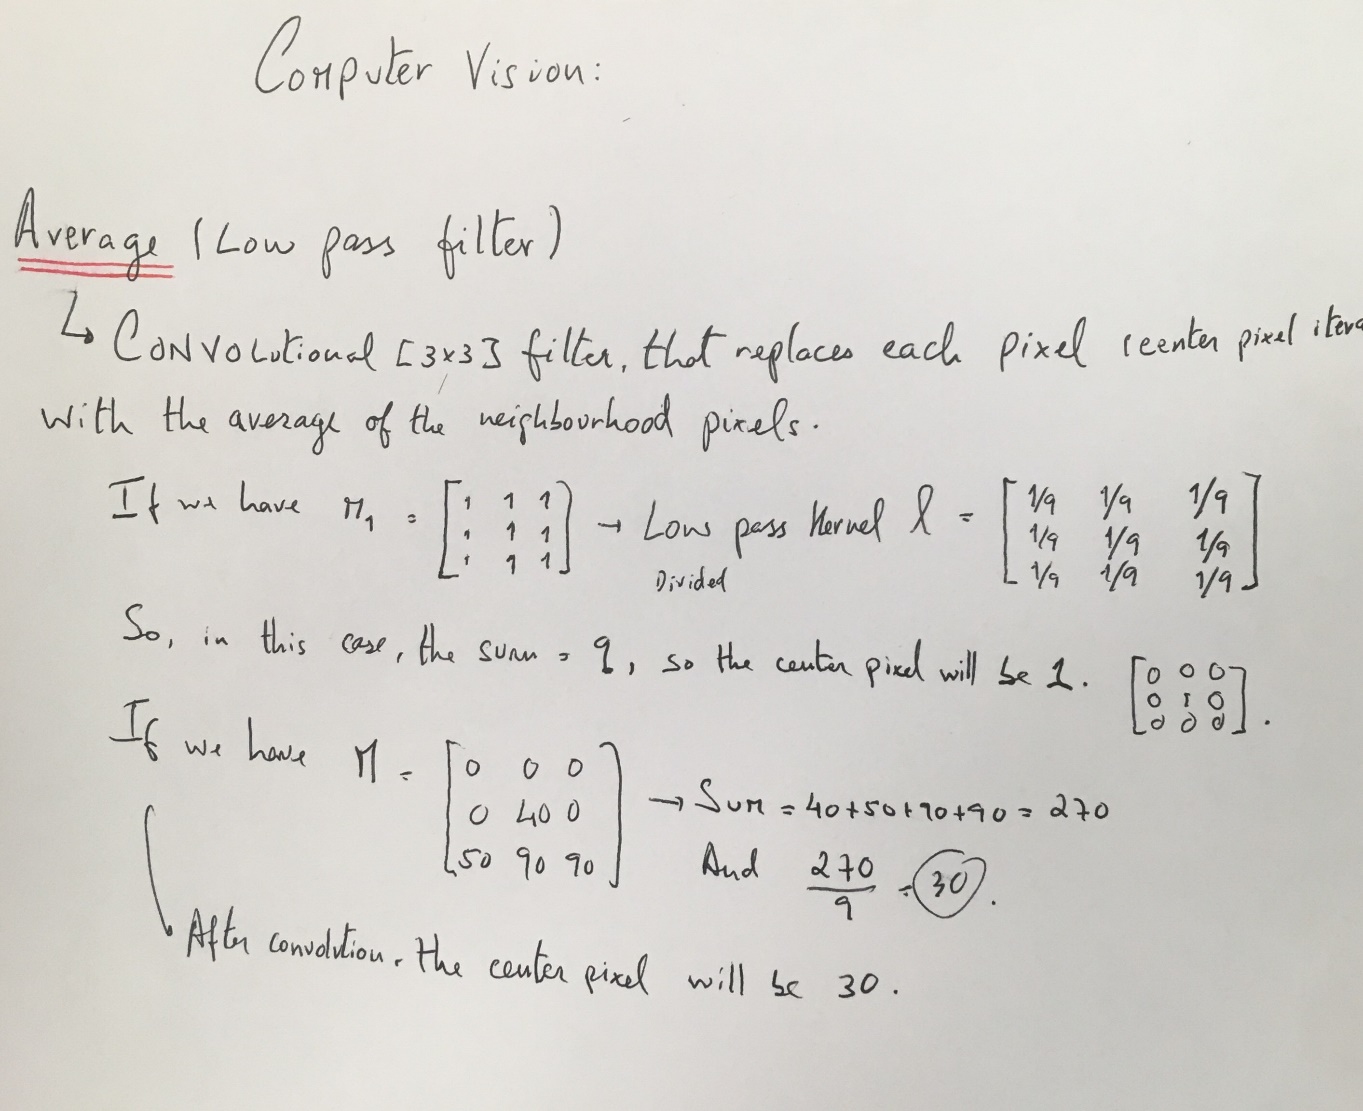 Computer Vision:
Average (Low pass filter)
↳ Convolutional [3x3] filter, that replaces each pixel (center pixel itera
with the average of the neighbourhood pixels.
If we have M1 = [1 1 1 → Low pass Kernel l = [1/9 1/9 1/9
1 1 1 1/9 1/9 1/9
1 1 1] Divided 1/9 1/9 1/9]
So, in this case, the sum = 9, so the center pixel will be 1. [0 0 0
0 1 0
0 0 0].
If we have M = [0 0 0
0 40 0 → Sum = 40+50+90+90 = 270
50 90 90] And 270/9 = 30.
↳ After convolution, the center pixel will be 30.